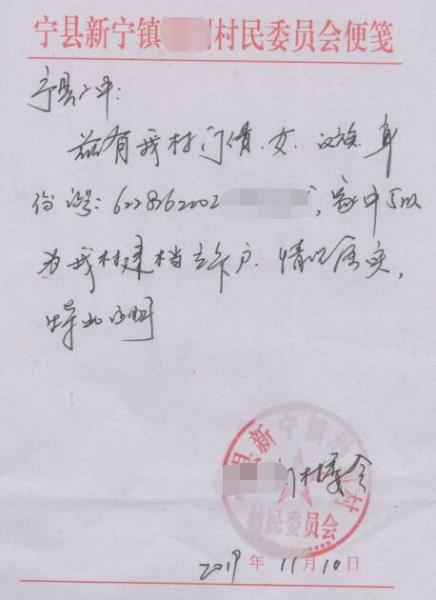 宁县新宁镇村民委员会便笺
宁县
兹有我村门倩,女,汉族,身
份证:6228262002,家
为我村建档立卡户,情况属实,
特此证明
县新宁镇村
村民委员会
门村委会
2019年11月10日